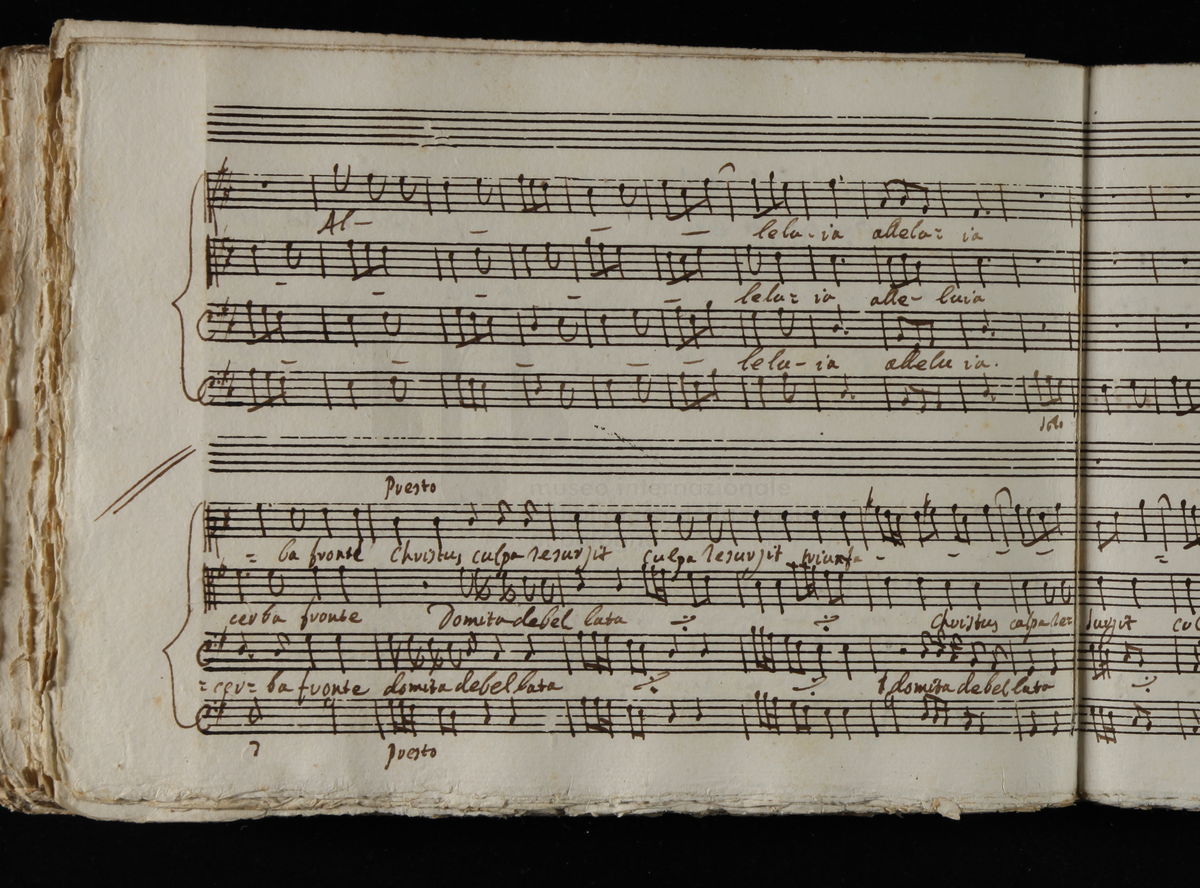 Al-
lelu-ia allelu= ia
lelu= ia alle- luia
lelu-ia allelu ia.
solo
museo internazionale
Presto
= ba fronte Christus culpa resurgit culpa resurgit triunfa -
cerba fronte Domita debel lata Christus culpa re= surgit cul
=cer= ba fronte domita debel lata domita debel lata
7
Presto